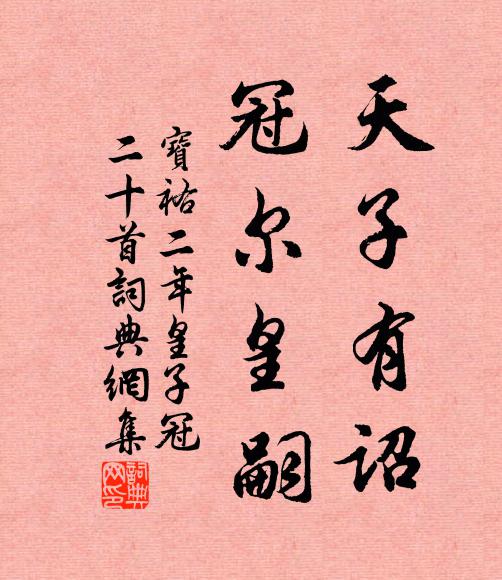 天子有詔
冠尔皇嗣
寶祐二年皇子冠
二十首詞典網集
詞典网印